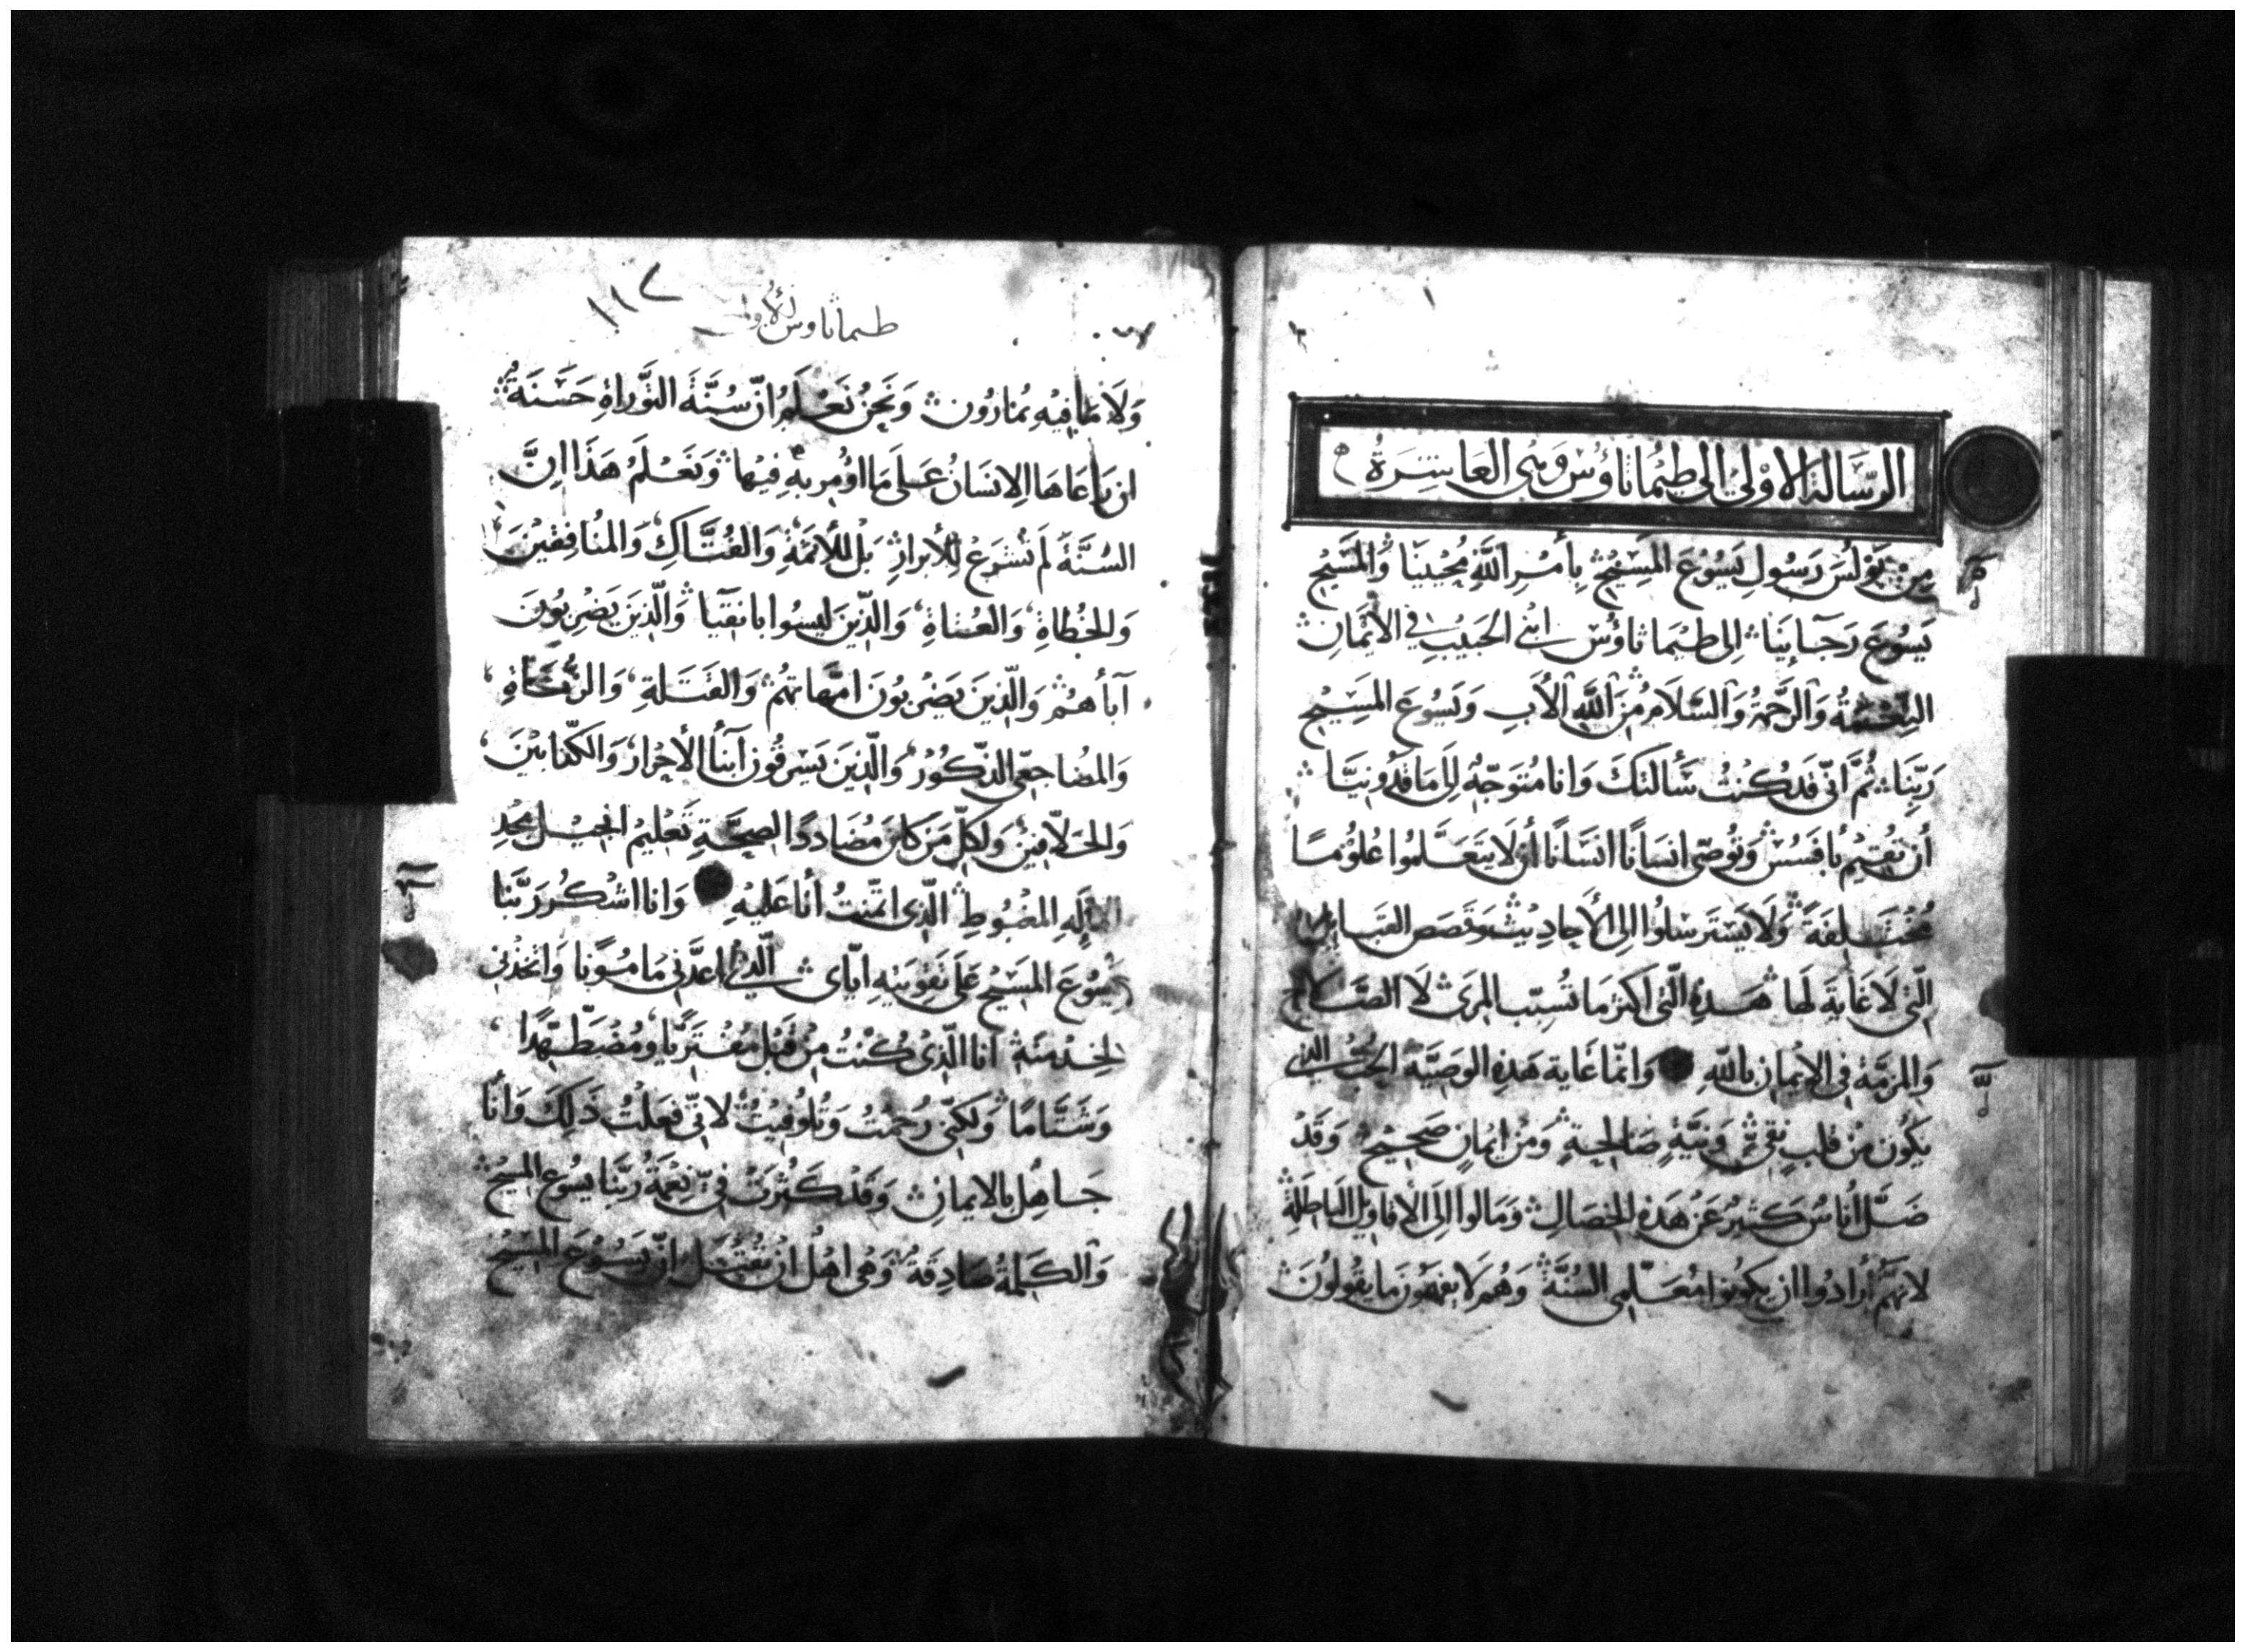 الرّسَالة الاوْلىٰ الى طيْمَاثاؤس وهى العَاشِرَةُ
مِن بَوْلسَ رَسُولِ يَسُوْعَ المَسِيْحِ بِأَمْرِ اللَّهِ مُحْيينَا وَالمَسِيْحِ
يَسُوْعَ رَجَآئِنَا الى طيْمَاثاؤُس ابنى الحَبيْبِ في الايْمَانِ
النِعْمَةُ وَالرَّحْمَةُ وَالسَّلَامُ مِنَ اللَّهِ الأَبِ وَيَسُوْعَ المَسِيْحِ
رَبِّنَا ثُمَّ انّى قَد كُنتُ سَأَلتكَ وَانا مُتَوَجّهٌ الى مَاقدُونِيَّا
أن تُقيْم بأفسُسْ وَتُوصّى انسَانًا انسَانًا أن لَا يتَعَلَّمُوا عُلوُمًا
مُخْتَلِفَةً وَلَا يَسْتَرسَلوُا الى الأحَادِيْث وَقصَص القبَايل
الّتى لَا غَايَةَ لهَا هَذِهِ الّتى اكثر مَا تُسبّب المرَى لَا الصَّلاح
وَالمرَمّة في الإيمان باللَّهِ وَانمّا غَاية هَذِهِ الوصَيَّة الحُبُّ الذى
يكُون مِنْ قلبٍ نَقِىٍّ وَنيَّةٍ صَالحَةٍ وَمِنْ ايمَانٍ صَحِيْحٍ وَقَدْ
ضَلَّ أُناسٌ كَثيْرٌ عَنْ هَذِهِ الخصَالِ وَمَالوُا الى الأقاويْل البَاطِلَةِ
لانهَّم أرَادُوا ان يكونوا مُعَلّمى السُنَّةِ وَهُم لَا يفهَمُونَ مَا يقُولُونَ
١١٧
طيماثاوس الأولى
وَلَا مَا فِيْهِ يُمَارُون وَنَحْنُ نَعْلَمُ انّ سُنَّةَ التَّوْرَاةِ حَسَنَةٌ
ان رَاعَاهَا الانسَانُ عَلَى مَا اؤُمِر بهِ فِيْهَا وَنَعْلَمُ هَذَا انَّ
السُنَّةَ لَم تُشرَعْ للأبرَارِ بَل للأثمَةِ وَالفُتَّاكِ وَالمُنافِقيْنَ
وَالخُطاةِ وَالعُتاةِ وَالّذيْنَ ليسُوا بانقيَا وَالّذيْنَ يَضرِبُونَ
آباءهُم وَالّذينَ يَضْربُونَ امّهاتهم وَالقَتَلةِ وَالزُّناةِ
وَالمضَاجعى الذّكوُرْ وَالّذيْنَ يَسْرقُون ابنآ الأحْرار وَالكذّابيْنَ
وَالحَلّافينَ وَلكلّ مَن كانَ مُضَاددًا لصحَّةِ تَعْليمْ انجيْل مجْدِ
الإلَهِ المغْبُوطِ الّذى ائتمنتُ أنا عَليْهِ وَانا اشْكُر رَبَّنا
يسُوْعَ المسَيْحَ عَلى تقويَتهِ ايّاى الّذى اعدَّنى مَأمُونًا وَاتخذنى
لخِدْمَتهِ انا الّذىْ كُنْتُ مِنْ قَبْل مُفْترِيًا وَمُضْطَهِدًا
وَشَتَّامًا وَلكنّى رُحمْتُ وَتُلوُفِيْتُ لانّى فعَلتُ ذَلِكَ وَأنا
جَاهِل بالايمانِ وَقَدْ كَثُرَتْ فىّ نِعْمَةُ رَبّنا يسُوعَ المسِيْحِ
وَالكَلمةُ صَادِقَةٌ وَهى اهْل انْ تُقبَل انّ يَسُوْعَ المسِيْحَ